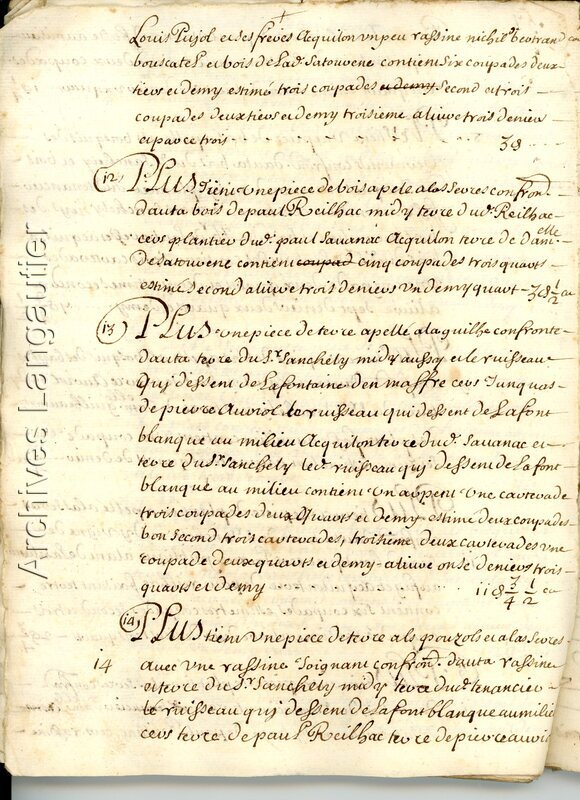 Louis Pujol et ses freres Acquilon un peu rassine nichil beotrand
bouscatel et bois de Lad. Latouvene contient six coupades deux
tiers et demy estimé trois coupades et demy second et trois
coupades deux tiers et demy troisieme alivré trois deniers
et parce trois 3 d
12 PLUS tient une piece de bois apelé a las serres confront
d'auta bois de paul Reilhac midy terre dud. Reilhac
cers plantier dud. paul Savanac Acquilon terre de dam.elle
de Latouvene contient coupad cinq coupades trois quarts
estimé second alivré trois deniers un demy quart 3 d 1/2
13 PLUS une piece de terre apellé a laguilhe confronte
d'auta terre du Sr. Sanchely midy aussy et le ruisseau
quj dessent de Lafontaine den maffre cers Junquas
de pierre Auriol le ruisseau quj dessent de Lafont
blanque au milieu Acquilon terre dud. Savanac et
terre du Sr. Sanchely led. ruisseau quj dessent de Lafont
blanque au milieu contient un arpent une carterade
trois coupades deux quarts et demy estimé deux coupades
bon second trois carterades, troisieme deux carterades une
coupade deux quarts et demy alivré onse deniers trois
quarts et demy 11 d 3/4 1/2
14 PLUS tient une piece de terre als pouzols et a las serres
14 avec une rassine Joignant confron. d'auta rassine
et terre du Sr. Sanchely midy terre dud. tenancier
le ruisseau quj dessent de Lafont blanque au milieu
cers terre de paul Reilhac terre de pierre auriol
Archives Langautier